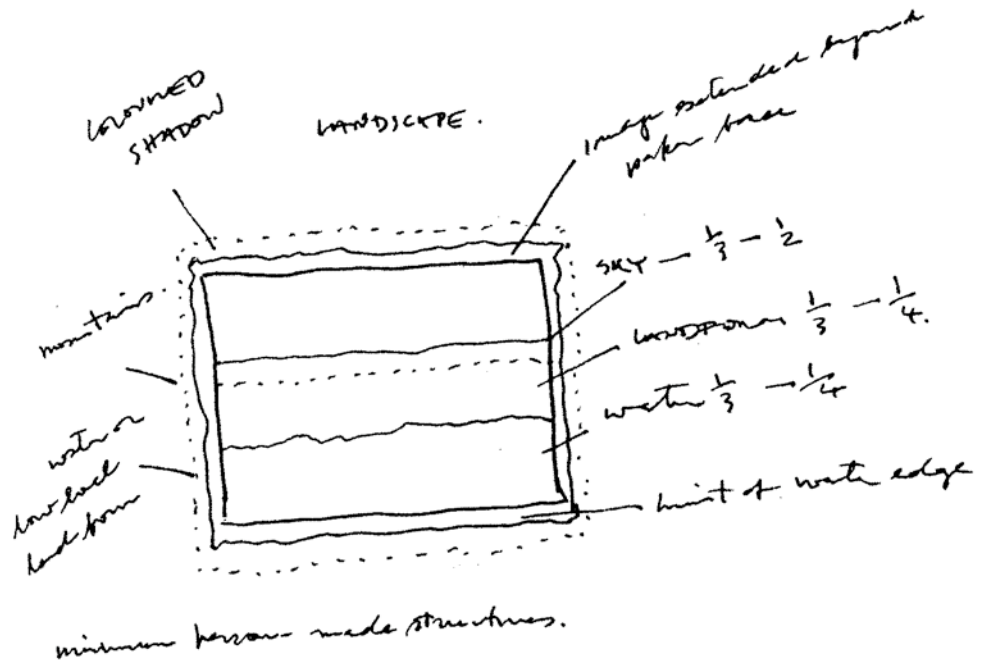 COLOURED
SHADOW
LANDSCAPE.
image extended beyond
paper base
SKY — 1/3 - 1/2
LANDFORM 1/3 → 1/4.
water 1/3 → 1/4
limit of water edge
mountains.
water or
low level
land form
minimum person-made structures.